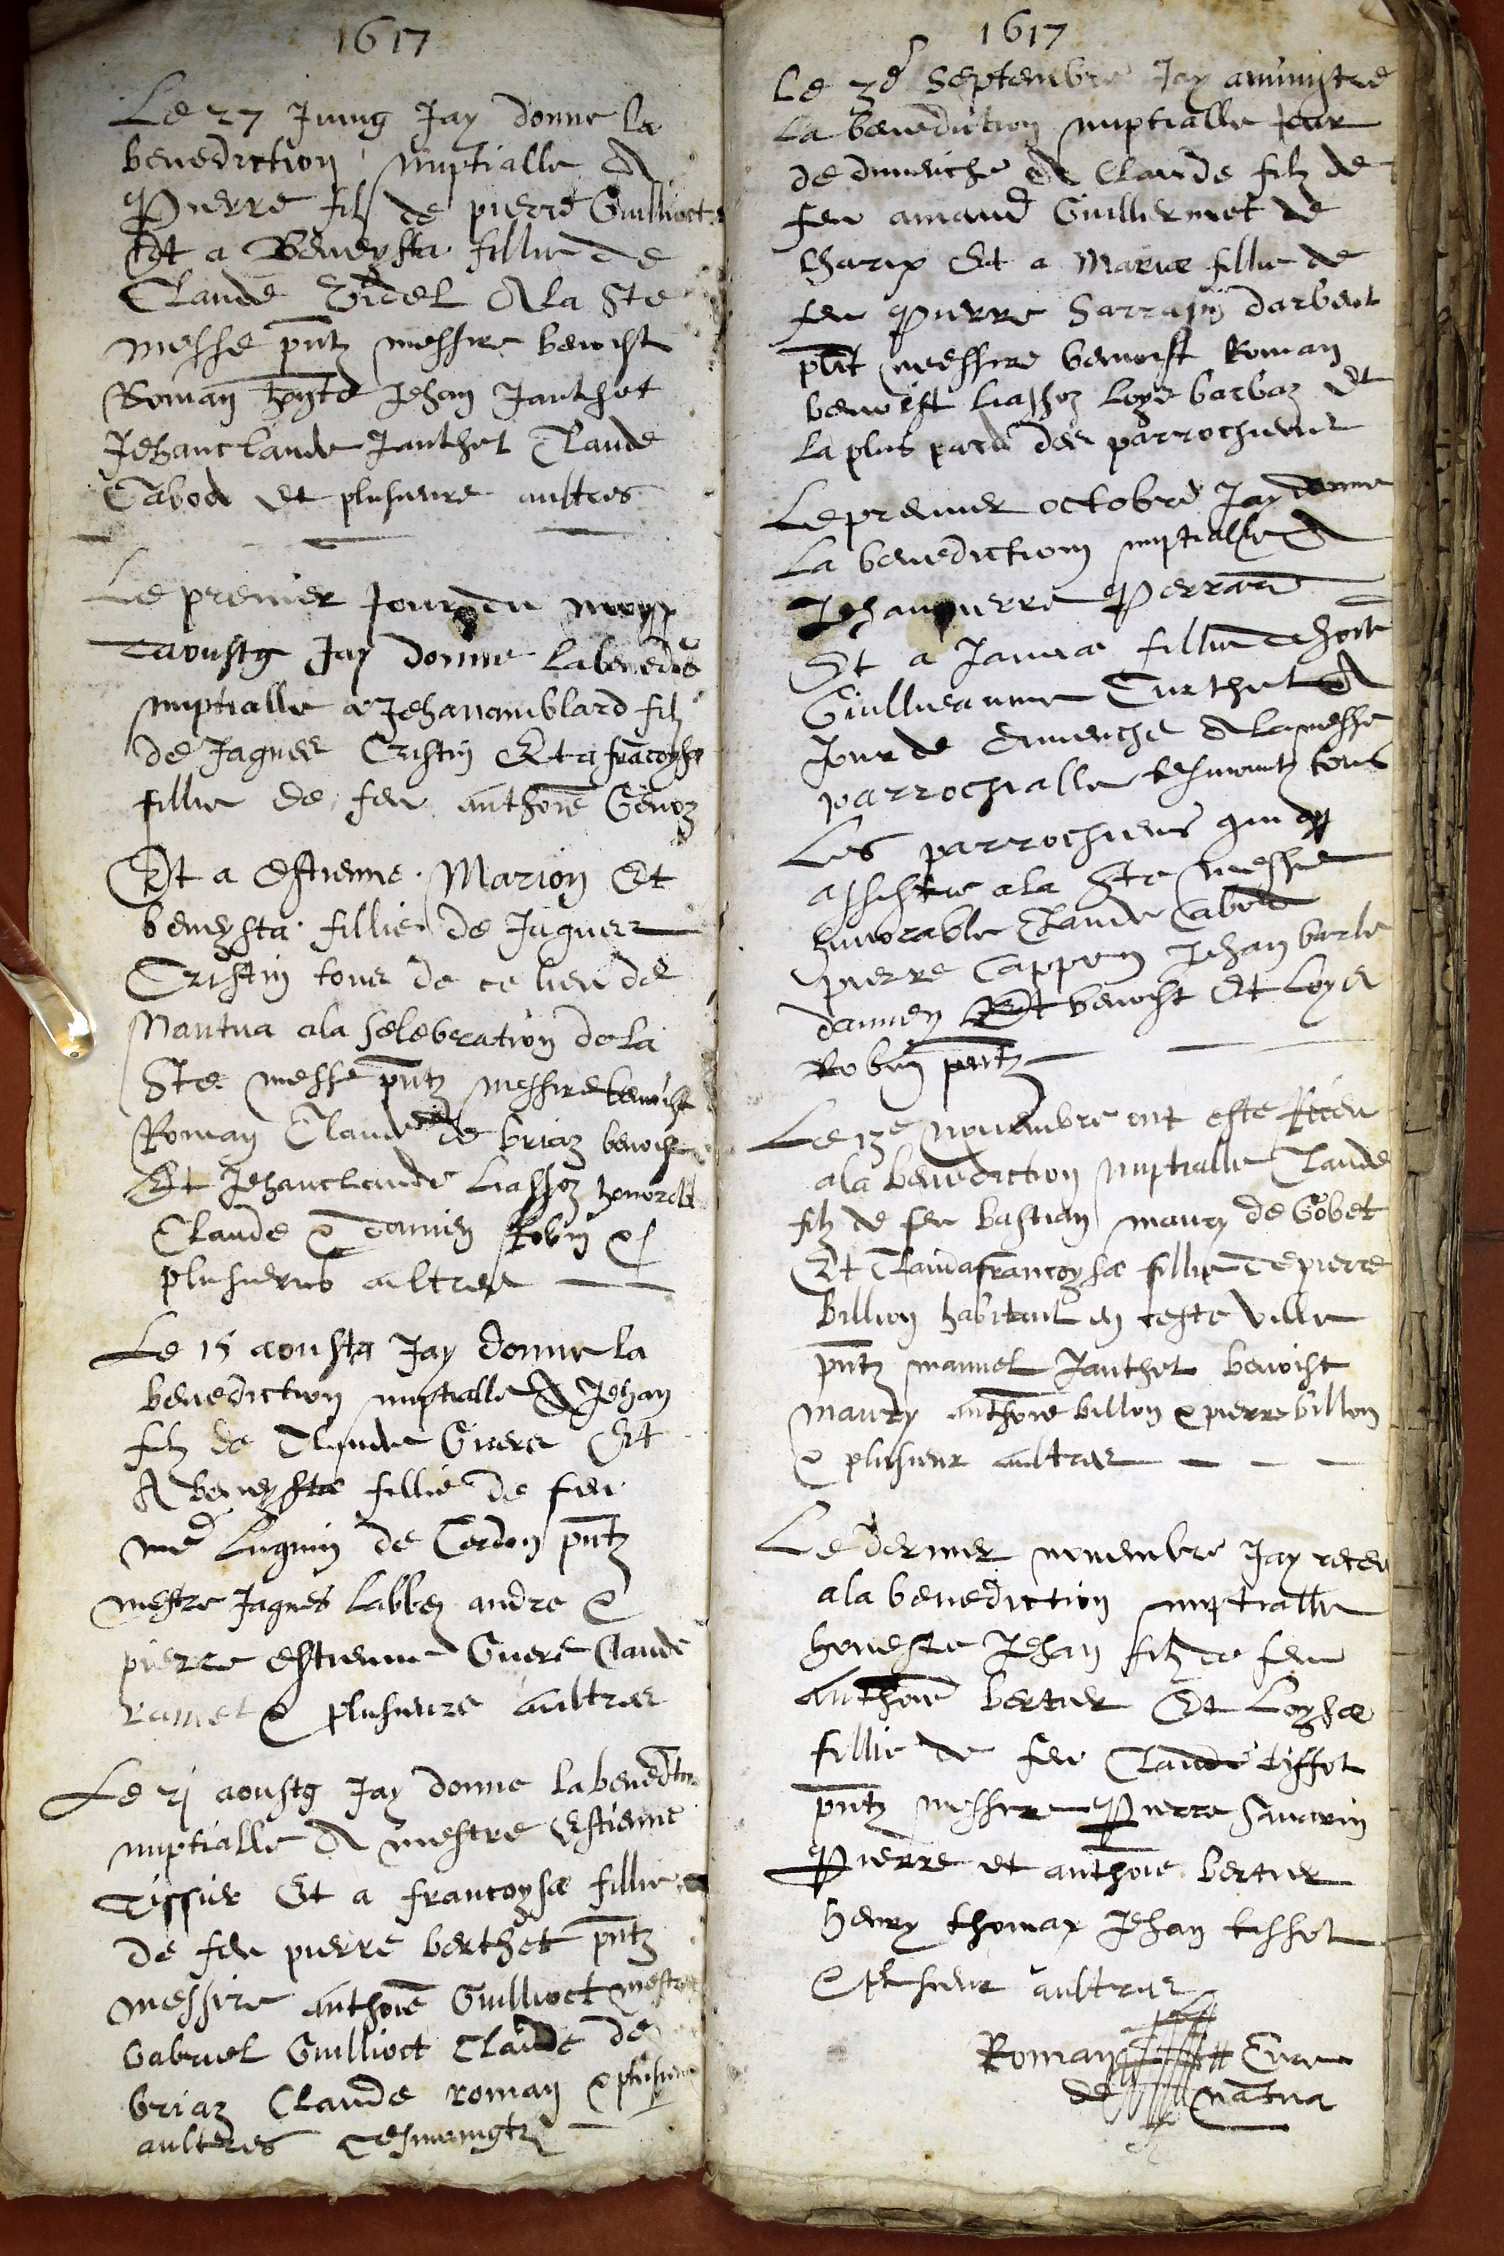 1617
Le 27 Juing Jay donne la
benediction nuptialle A
Pierre filz de pierre Guillioct
Et a Beneysta fillie de
Claude Videl A la Ste
messe pntz messire benoist
Roman honte Jehan Janthet
Jehanclaude Janthet Claude
Cabod et plusieurs aultres
Le premier Jour du moys
daoustz Jay donne la benedon
nuptialle a Jehan amblard filz
de Jaques Cristin Et a francoysa
fillie de feu anthoie Genoz
Et a Estienne Marion Et
beneysta fillie de Jaques
Cristin tous de ce lieu de
Nantua a la seleberation de la
Ste messe pntz messire benoist
Roman Claude de briaz benoist
Et Jehanclaude Liasoz honorable
Claude & Damien Robin &
plusieurs altres
Le 15 aousta Jay donne la
benediction nuptialle A Jehan
filz de Claude Guere Et
A beneysta fillie de feu
med Luguin de Cerdon pntz
mestre Jaques Labbez andre &
pierre estienne Guere Claude
ramet & plusieurs aultres
Le 21 aoustz Jay donne la benedton
nuptialle A mestre Estienne
Tissier Et a francoysa fillie
de feu pierre berthet pntz
messire anthoie Guillioct mestre
Gabriel Guillioct Claude de
briaz Claude roman & plusieurs
aulteres tesmoingtz
1617
Le 3e Septembre Jay aministre
La benediction nuptialle Jour
de dimenche A Claude filz de
feu amand Guillermet de
Charix Et a Maria fillie de
feu Pierre Sarrasin darbent
pnt messire benoist Roman
benoist Liasoz Loys barbaz Et
la plus pard des parrochiens
Le premier octobre Jay donne
La benediction nuptialle A
Jehan pierre Perrand
Et a Janna fillie de honte
Guillieaume Turchet A
Jour de dimenche A la messe
parrochialle tesmointz tous
Les parrochiens qui ont
assistee a la Ste messe
honorable Claude Cabod
pierre Cappon Jehan barle
damien Et benoist Et Loys
Robin pntz
Le 13e nouembre ont este Receu
a la benediction nuptialle Claude
filz de feu bastian maury de Gobet
Et Clauda francoysa fillie de pierre
billion habitant en ceste ville
pntz manuel Janthet benoist
maury anthoie billon & pierre billon
& plusieur aultres
Le dernier nouembre Jay receu
a la benediction nuptialle
honeste Jehan filz de feu
anthoie bertier Et Loysa
fillie de feu Claude tissot
pntz messire Pierre Sauarin
Pierre et anthoie bertier
henry thomax Jehan tissot
& plusieur aultres
Roman Cure
de nantua